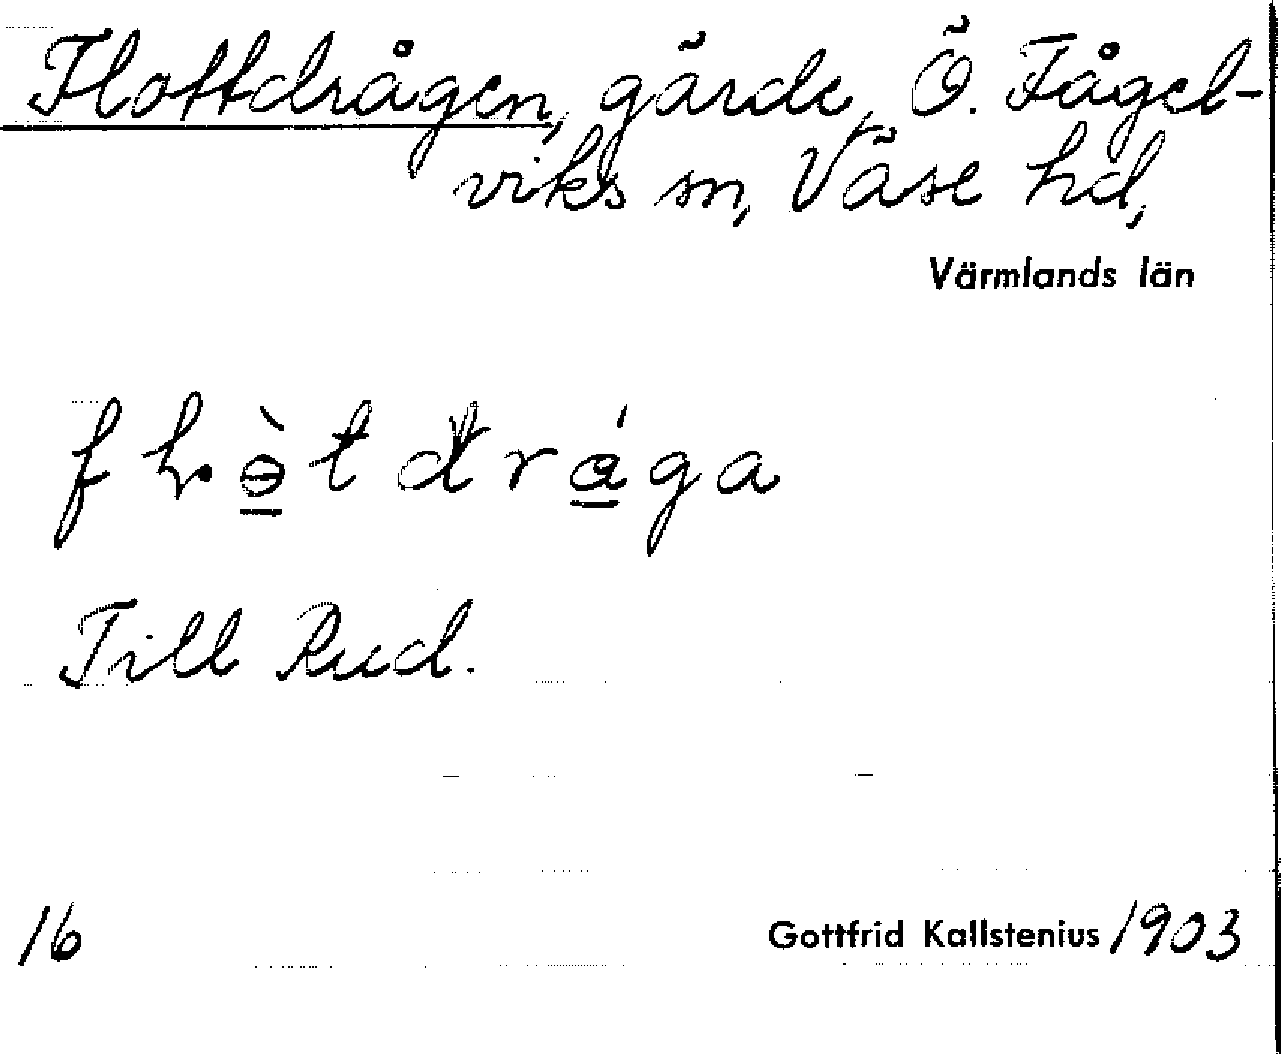 Flottdrågen, gärde, Ö. Fågel-
viks sn, Väse hd,
Värmlands län
Till Rud.
16
Gottfrid Kallstenius 1903